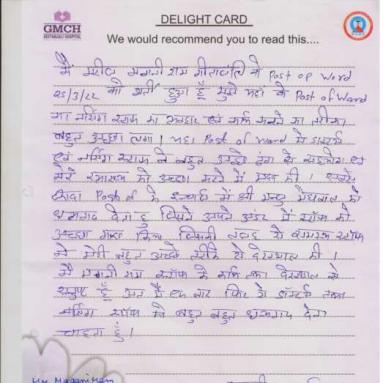 GMCH
GEETANJALI HOSPITAL
DELIGHT CARD
We would recommend you to read this....
मैं मरीज मगनी राम गीतांजलि में Post op Word
25/3/22 को भर्ती हुआ हूँ मुझे यहां के Post of Word
का नर्सिंग स्टाफ का व्यवहार एवं कार्य करने का तरीका
बहुत अच्छा लगा। यहा Post of Word में डाक्टर
एवं नर्सिंग स्टाफ ने बहुत अच्छे ढंग से
मेरे स्वास्थ्य को अच्छा करने में मदद की।
Post of के में श्री
धन्यवाद देता हूँ जिसने अपने अंडर में स्टॉफ को
अच्छा जिसकी वजह से स्टॉफ
ने मेरी बहुत अच्छे तरीके से देखभाल की।
मैं मगनी राम स्टॉफ के कार्य तथा देखभाल से
खुश हूँ अतः मैं एक बार फिर से डॉक्टर तथा
नर्सिंग स्टॉफ को बहुत बहुत धन्यवाद देना
चाहता हूँ।
Mr. Magani Ram